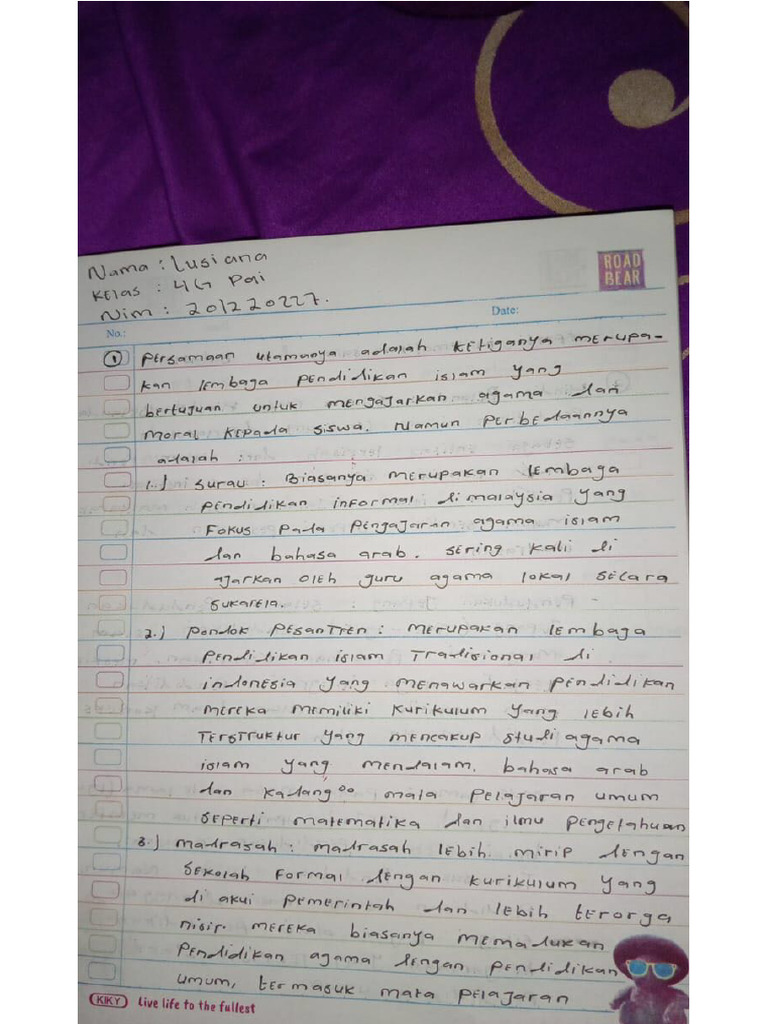 Nama : Lusiana
Kelas : 4G Pai
Nim : 201220227.
ROAD
BEAR
No.:
Date:
① Persamaan utamanya adalah ketiganya merupa-
kan lembaga pendidikan islam yang
bertujuan untuk mengajarkan agama dan
moral kepada siswa. Namun perbedaannya
adalah :
1.) Surau : Biasanya merupakan lembaga
pendidikan informal di malaysia yang
Fokus pada pengajaran agama islam
dan bahasa arab. sering kali di
ajarkan oleh guru agama lokal secara
sukarela.
2.) pondok pesantren : merupakan lembaga
pendidikan islam Tradisional di
indonesia yang menawarkan pendidikan
mereka memiliki kurikulum yang lebih
Terstruktur yang mencakup studi agama
islam yang mendalam. bahasa arab
dan kadang" mata pelajaran umum
seperti matematika dan ilmu pengetahuan
3.) madrasah : madrasah lebih mirip dengan
sekolah formal dengan kurikulum yang
di akui pemerintah dan lebih terorga
nisir. mereka biasanya memadukan
pendidikan agama dengan pendidikan
umum, termasuk mata pelajaran
KIKY Live life to the fullest